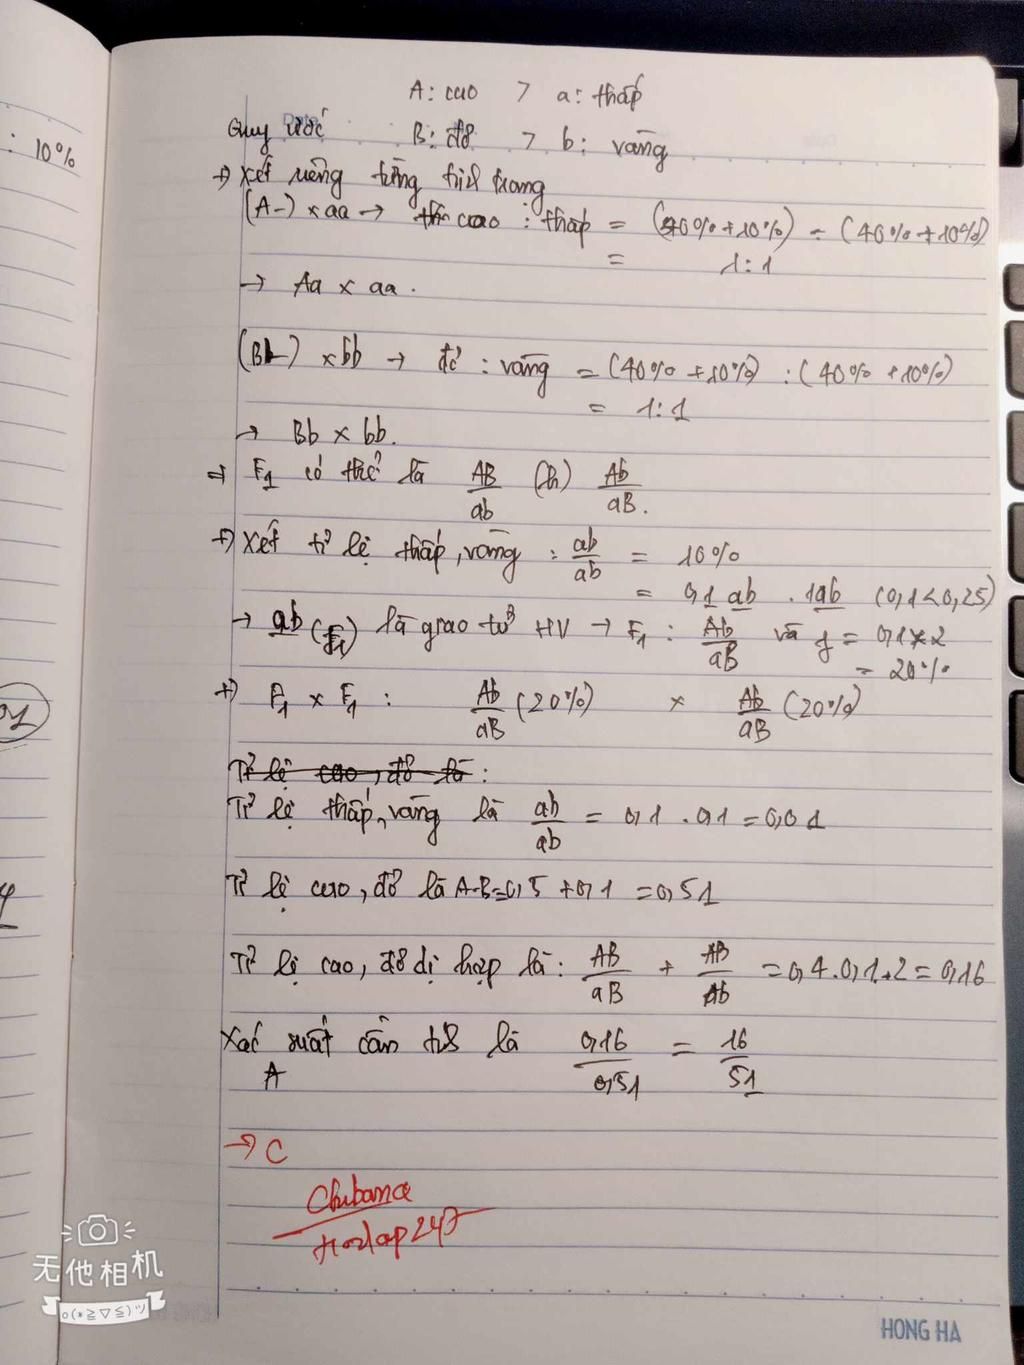 : 10%
A: cao > a: thấp
Quy ước B: đỏ > b: vàng
+) Xét riêng từng tính trạng
(A-) x aa → cao : thấp = (40% + 10%) : (40% + 10%)
= 1:1
→ Aa x aa.
(B-) x bb → đỏ : vàng = (40% + 10%) : (40% + 10%)
= 1:1
→ Bb x bb.
⇒ F1 có thể là AB/ab (h) Ab/aB.
+) Xét tỉ lệ thấp, vàng : ab/ab = 10%
= 0,1 ab . 1 ab (0,1 < 0,25)
→ ab (F1) là giao tử HV → F1 : Ab/aB và f = 0,1 x 2
= 20%
+) F1 x F1 : Ab/aB (20%) x Ab/aB (20%)
Tỉ lệ cao, đỏ là :
Tỉ lệ thấp, vàng là ab/ab = 0,1 . 0,1 = 0,01
Tỉ lệ cao, đỏ là A-B = 0,5 + 0,1 = 0,51
Tỉ lệ cao, đỏ dị hợp là: AB/aB + AB/Ab = 0,4 . 0,1 . 2 = 0,16
Xác suất cần là 0,16/0,51 = 16/51
A
→ C
hoidap247
无他相机
o(*≧▽≦)ツ
HONG HA